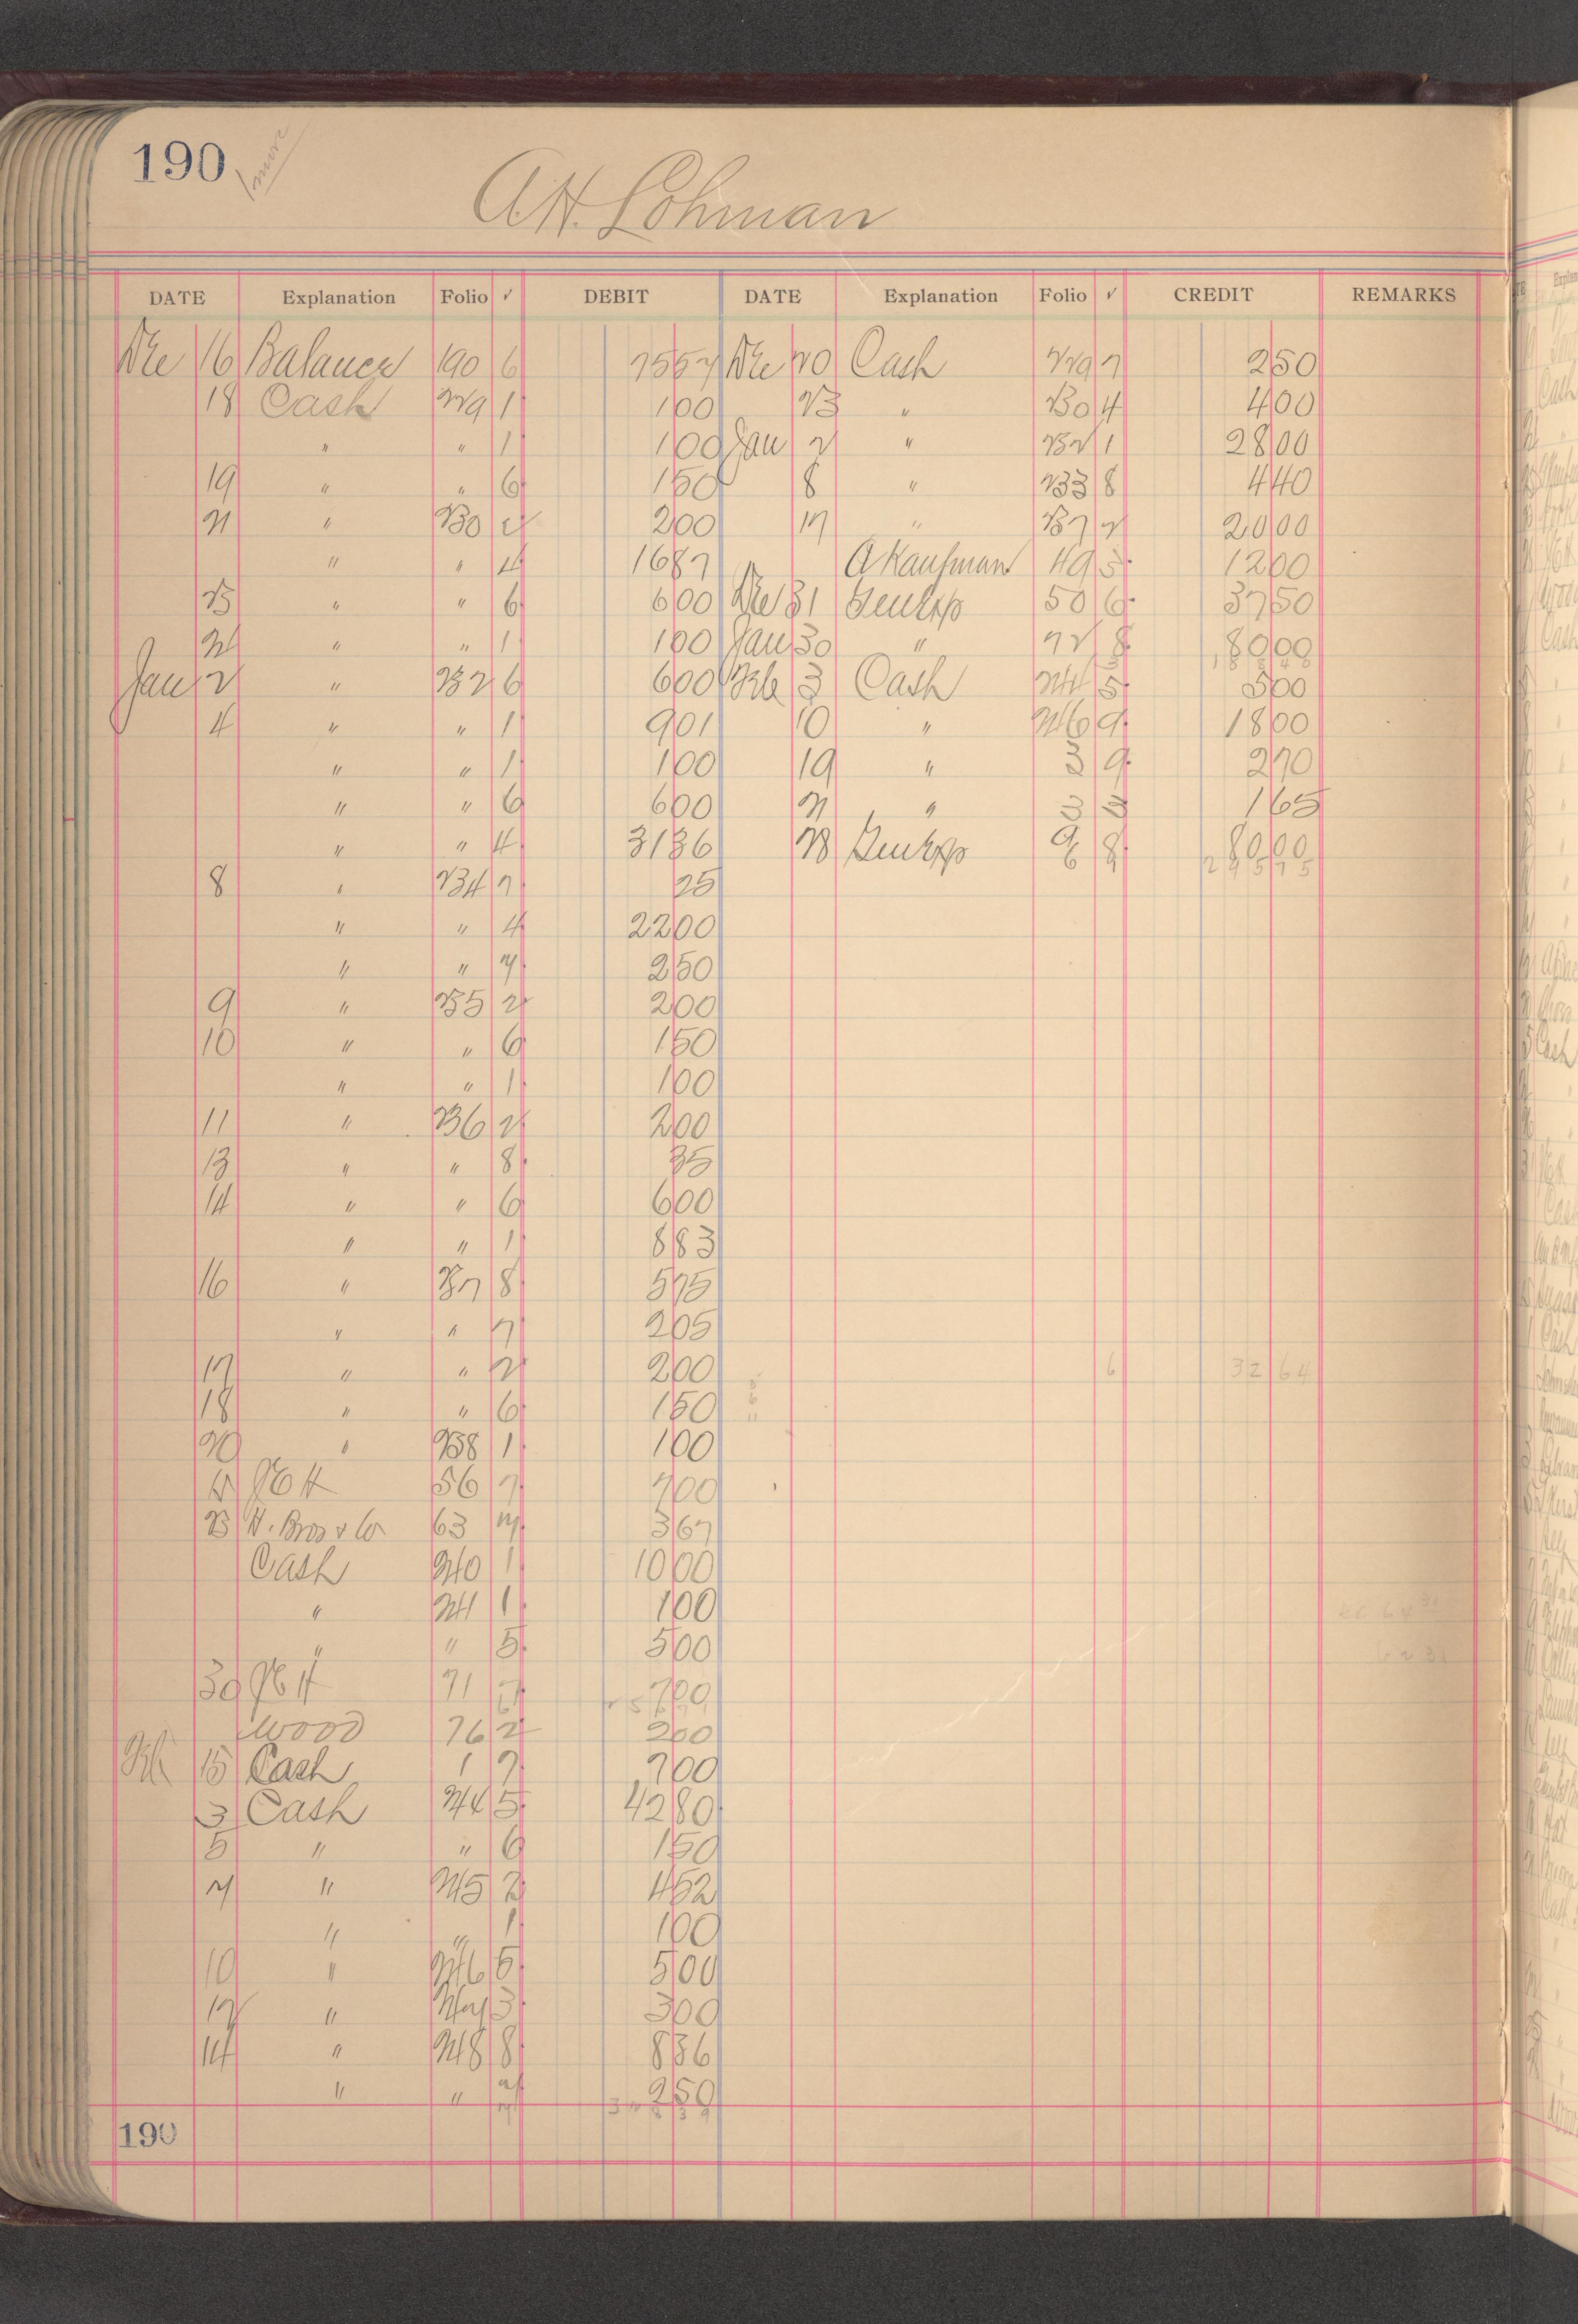 190
A.H. Lohman
DATE Explanation Folio ✓ DEBIT DATE Explanation Folio ✓ CREDIT REMARKS
Dec 16 Balance 190 6 7557 Dec 20 Cash 229 7 250
18 Cash 229 1 100 23 " 230 4 400
" " 1 100 Jan 2 " 232 1 2800
19 " " 6 150 8 " 233 8 440
21 " 230 2 200 17 " 237 2 2000
" " 4 1687 A Kaufman 49 5 1200
23 " " 6 600 Dec 31 Gen Exp 50 6 3750
24 " " 1 100 Jan 30 " 72 8 8000
Jan 2 " 232 6 600 Feb 3 Cash 244 5 500
4 " " 1 901 10 " 246 9 1800
" " 1 100 19 " 3 9 270
" " 6 600 21 " 3 3 165
" " 4 3136 28 Gen Exp 96 8 8000
8 " 234 7 25
" " 4 2200
" " 7 250
9 " 235 2 200
10 " " 6 150
" " 1 100
11 " 236 2 200
13 " " 8 35
14 " " 6 600
" " 1 883
16 " 237 8 575
" " 7 205
17 " " 2 200 6 32 64
18 " " 6 150
20 " 238 1 100
56 7 700
23 H. Bros & Co 63 367
Cash 240 1 1000
" 241 1 100
" " 5 500
30 71 7 700
Wood 76 2 200
Feb 15 Cash 1 7 700
3 Cash 244 5 4280
5 " " 6 150
7 " 245 2 452
" " 1 100
10 " 246 5 500
12 " 247 3 300
14 " 248 8 836
" " 250
190